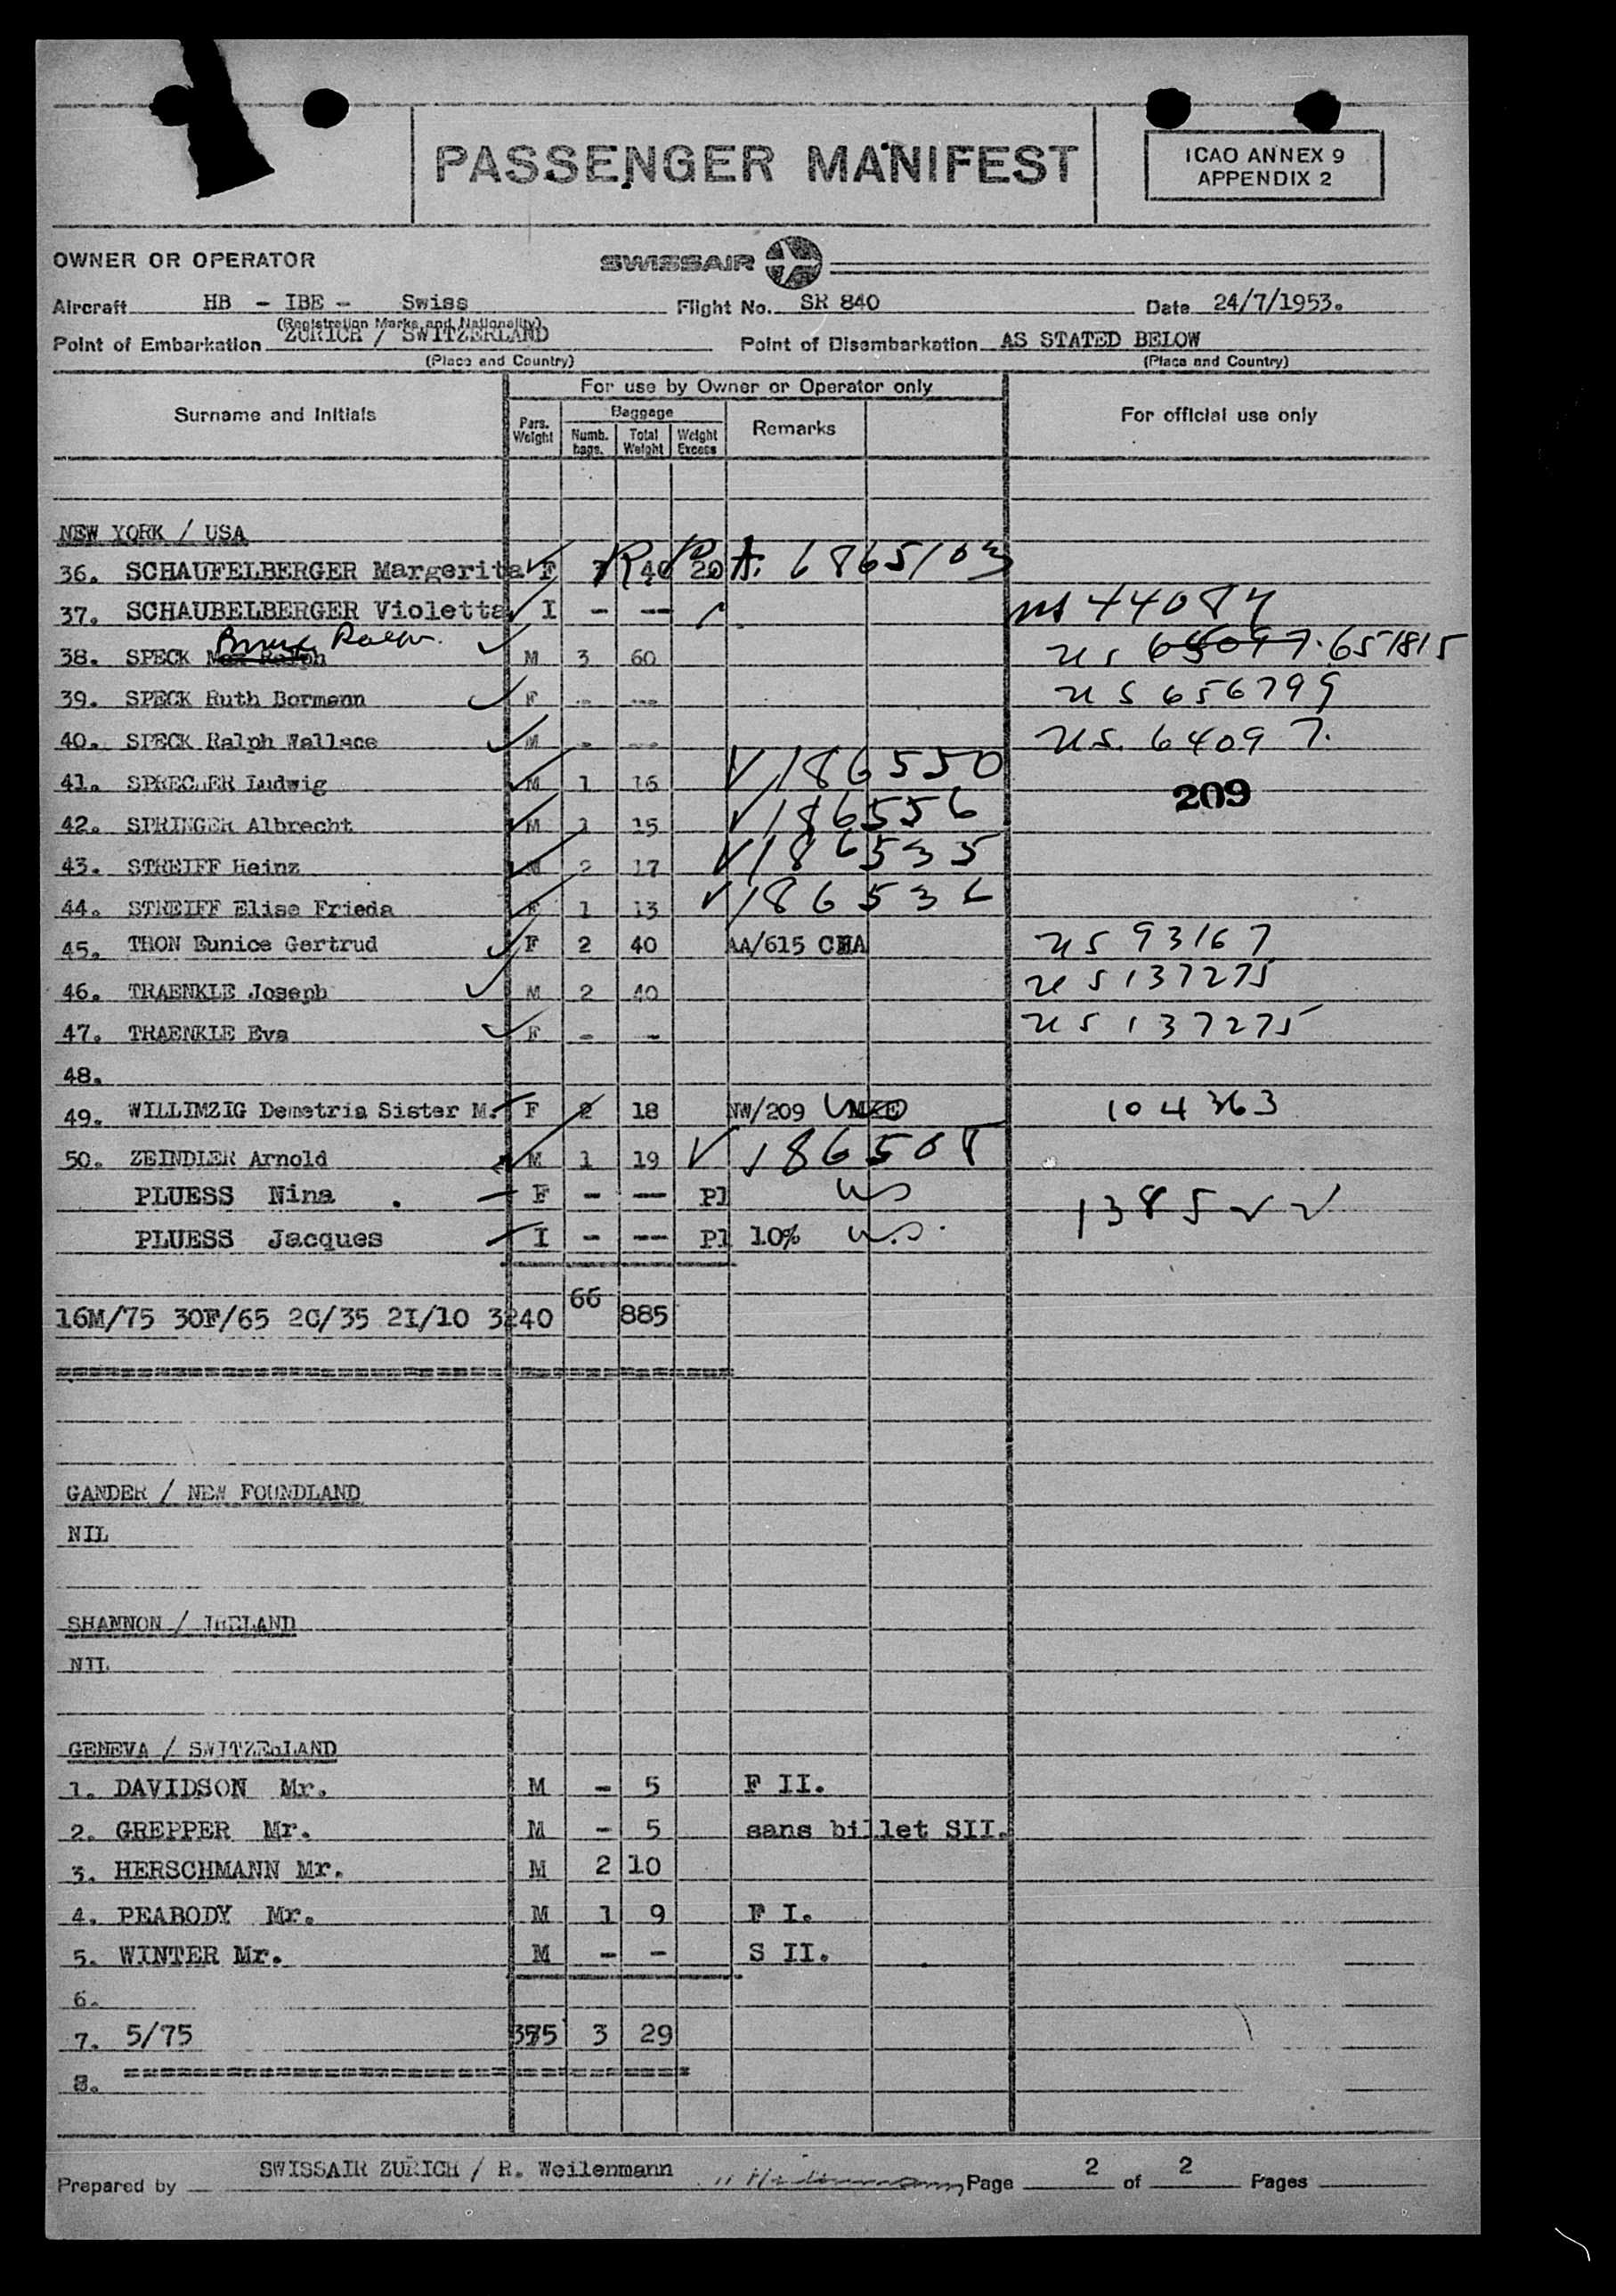 PASSENGER MANIFEST
ICAO ANNEX 9
APPENDIX 2
OWNER OR OPERATOR SWISSAIR
Aircraft HB - IBE - Swiss Flight No. SR 840 Date 24/7/1953.
(Registration Marks and Nationality)
Point of Embarkation ZURICH / SWITZERLAND Point of Disembarkation AS STATED BELOW
(Place and Country) (Place and Country)
For use by Owner or Operator only
Surname and Initials Pars. Weight Baggage Numb. bags. Total Weight Weight Excess Remarks For official use only
NEW YORK / USA
36. SCHAUFELBERGER Margerita F 40 20 A. 6865103
37. SCHAUBELBERGER Violetta I - -- 44084
Bruce Ralph.
38. SPECK Max Ralph M 3 60 US 64097. 651815
39. SPECK Ruth Bormann F - --- US 656799
40. SPECK Ralph Wallace M - --- US. 64097.
41. SPRECHER Ludwig M 1 16 V186550
209
42. SPRINGER Albrecht M 1 15 V186556
43. STREIFF Heinz M 2 17 V186535
44. STREIFF Elise Frieda F 1 13 V186536
45. THON Eunice Gertrud F 2 40 AA/615 CHA US 93167
46. TRAENKLE Joseph M 2 40 US 137275
47. TRAENKLE Eva F - -- US 137275
48.
49. WILLIMZIG Demetria Sister M. F 2 18 NW/209 MKE 104363
50. ZEINDLER Arnold M 1 19 V 186508
PLUESS Nina . F - -- Pl US
PLUESS Jacques I - -- Pl 10% U.S. 1385
16M/75 30F/65 2C/35 2I/10 3240 66 885
GANDER / NEW FOUNDLAND
NIL
SHANNON / IRELAND
NIL
GENEVA / SWITZERLAND
1. DAVIDSON Mr. M - 5 F II.
2. GREPPER Mr. M - 5 sans billet SII.
3. HERSCHMANN Mr. M 2 10
4. PEABODY Mr. M 1 9 F I.
5. WINTER Mr. M - - S II.
6.
7. 5/75 375 3 29
8.
Prepared by SWISSAIR ZURICH / R. Weilenmann Page 2 of 2 Pages